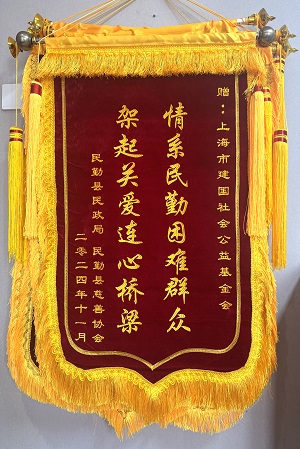 赠：上海市建国社会公益基金会
情系民勤困难群众
架起关爱连心桥梁
民勤县民政局 民勤县慈善协会
二零二四年十一月